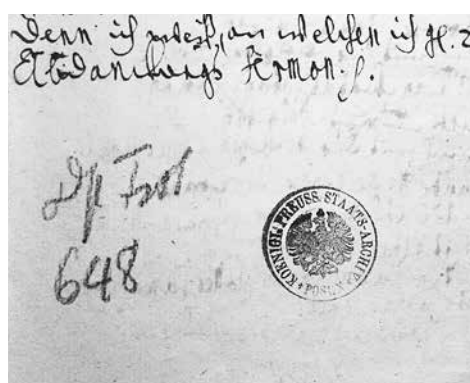 Denn ich weiß, an welchen ich gl. 2
Abdanckungs Sermon. f.
Dep. Frst
648
KOENIGL. PREUSS. STAATS-ARCHIV
* POSEN *